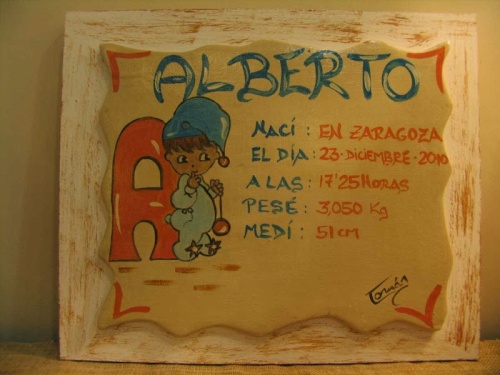 ALBERTO
A
NACÍ : EN ZARAGOZA
EL DÍA : 23·DICIEMBRE·2010
A LAS : 17'25 HORAS
PESÉ : 3,050 Kg
MEDÍ : 51 cm
Tomás